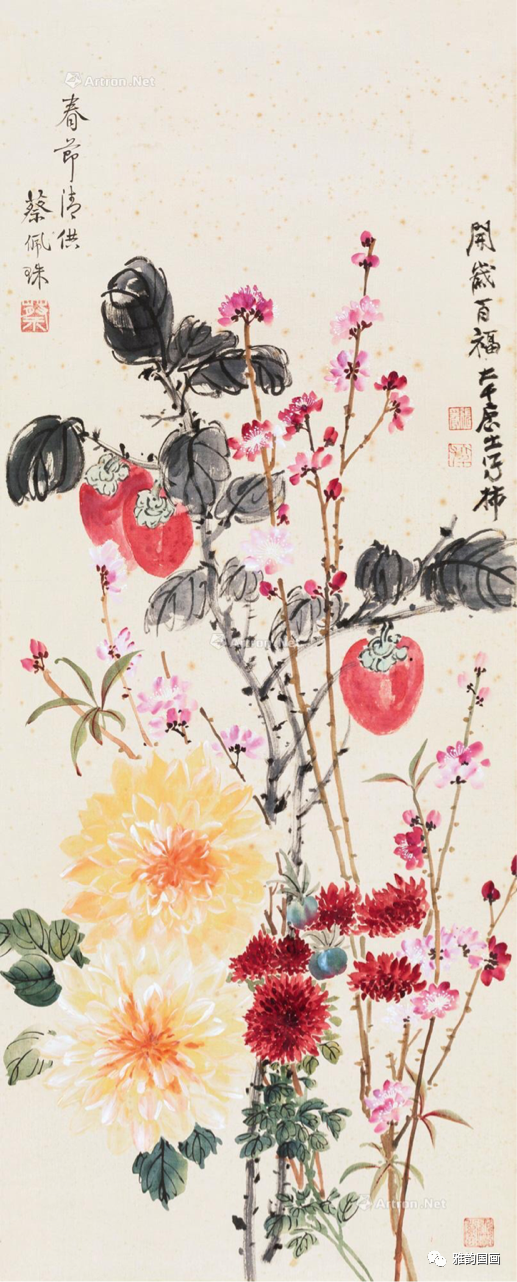 Artron.Net
春節清供
蔡佩珠
開歲百福大千居士寫柿
Artron.Net
Artron.Net
雅韵国画